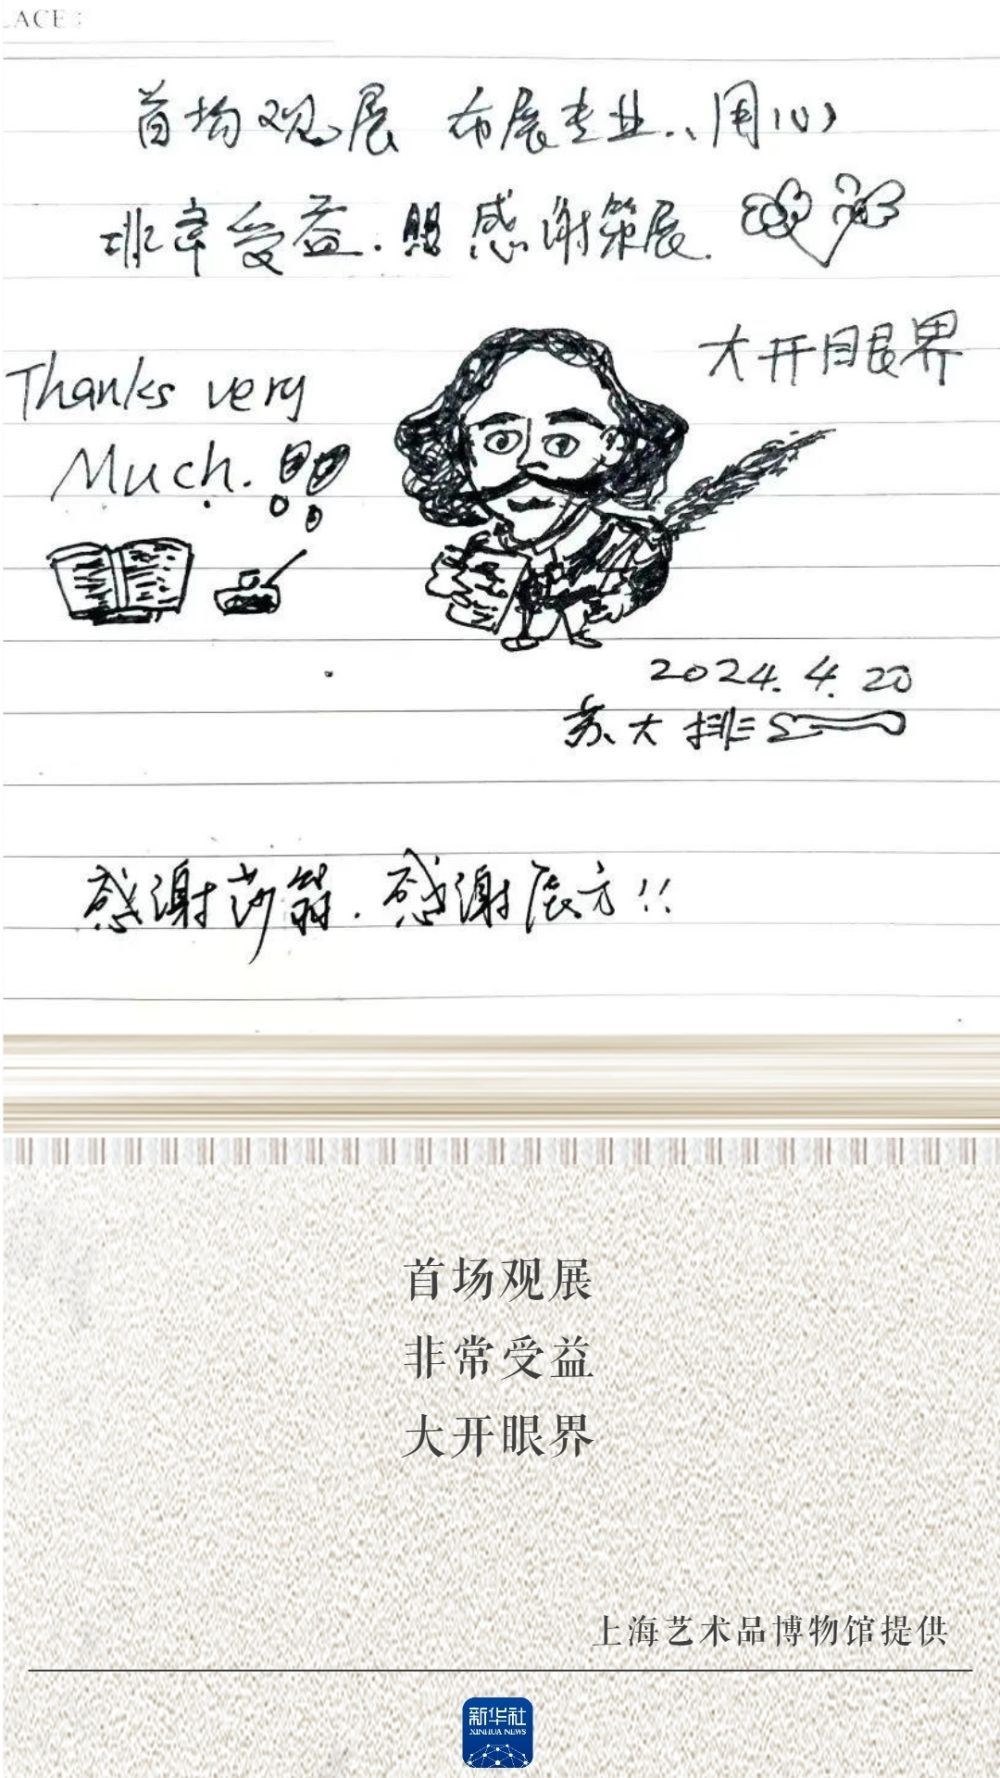 LACE :
首场观展 布展专业、用心
非常受益. 感谢策展.
大开眼界
Thanks very
Much.
2024. 4. 20
苏大排
感谢莎翁. 感谢展方!!
首场观展
非常受益
大开眼界
上海艺术品博物馆提供
新华社
XINHUA NEWS